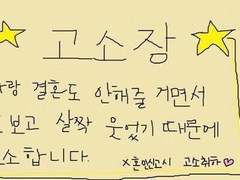 고소장
랑 결혼도 안해줄 거면서
보고 살짝 웃었기 때문에
소합니다.
x혼인신고시 고소취하♡